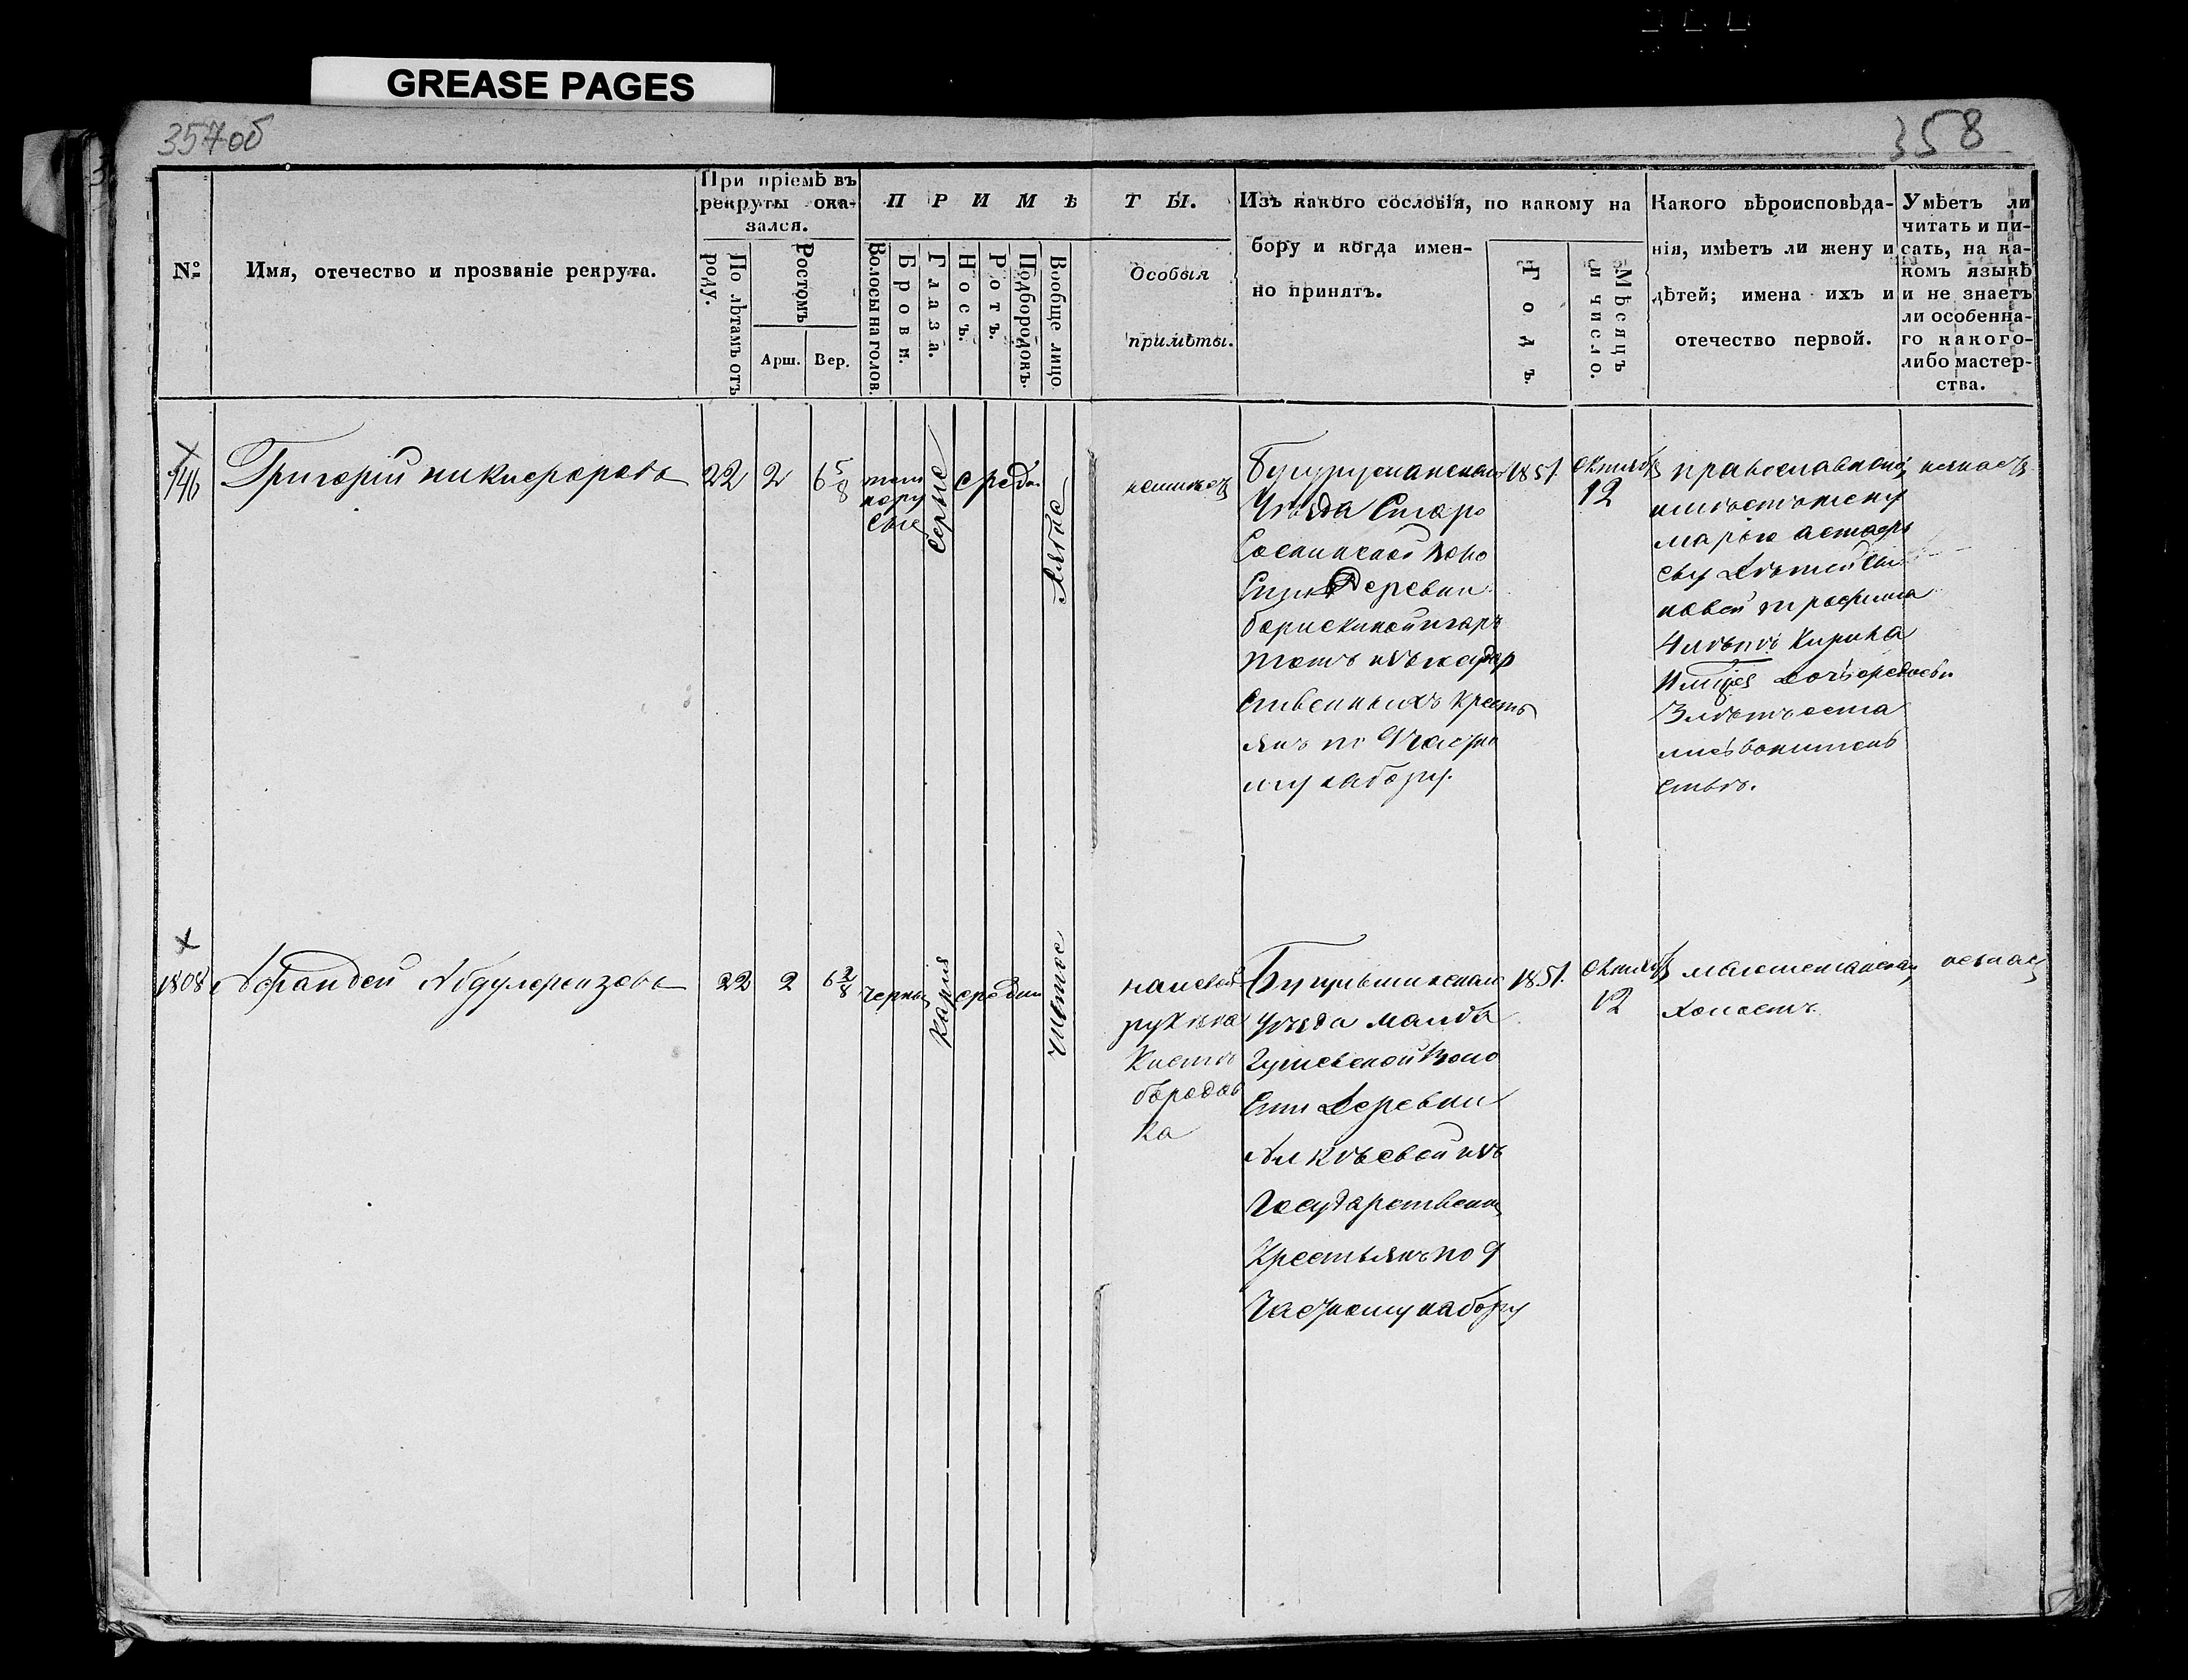 GREASE PAGES
357об
358
№
Имя, отечество и прозваніе рекрута.
При пріемѣ въ
рекруты ока-
зался.
По лѣтамъ отъ
роду.
Ростомъ
Арш. Вер.
ПРИМѢТЫ.
Волосы на голов.
Брови.
Глаза.
Носъ.
Ротъ.
Подбородокъ.
Вообще лицо
Особыя
примѣты.
Изъ какого сословія, по какому на
бору и когда имен-
но принятъ.
Годъ.
Мѣсяцъ
и число.
Какого вѣроисповѣда-
нія, имѣетъ ли жену и
дѣтей; имена ихъ и
отечество первой.
Умѣетъ ли
читать и пи-
сать, на ка-
комъ языкѣ
и не знаетъ
ли особенна-
го какого-
либо мастер-
ства.
Григорій никифоровъ
22 2 6 5/8
темно
русые
серые
средн
неимеет
Бугурусланскаго
Уѣзда Старо
Соснинской воло
Сти Деревни
борискиной
ственныхъ Крестъ
янъ по 9 частно
му набору.
1851
Октября
12
православной
имѣетъ жену
марью астафь
еву Дѣтей сы
новей трофима
4 лѣтъ Кирила
Дочь
3 лѣтъ
ствѣ.
незнает
х
1808
Абдулфеизовъ
22 2 6 2/8
черны
карія
средни
чистое
налевой
рукѣ на
Кисте
бородав
ка
Бугульминскаго
Уѣзда
Волo
сти Деревни
Алкѣевой изъ
Государственн
Крестьянъ по 9
Частному набору
1851.
Октября
12
магометанская
холостъ
незнает